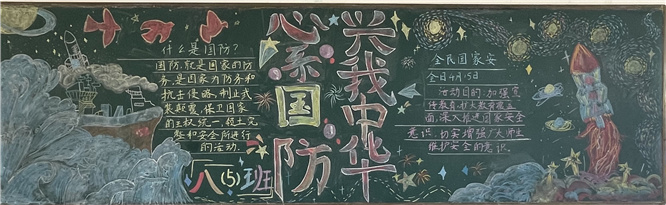 什么是国防?
国防,就是国家的防
务,是国家为防务和
抗击侵略,制止武
装颠覆,保卫国家
的主权统一,领土完
整和安全所进行
的活动.
八(5)班
心系国防
兴我中华
全民国家安
全日4月·15日
活动目的:加强宣
传教育,扩大教育覆盖
面,深入推进国家安全
意识,切实增强广大师生
维护安全的意识.